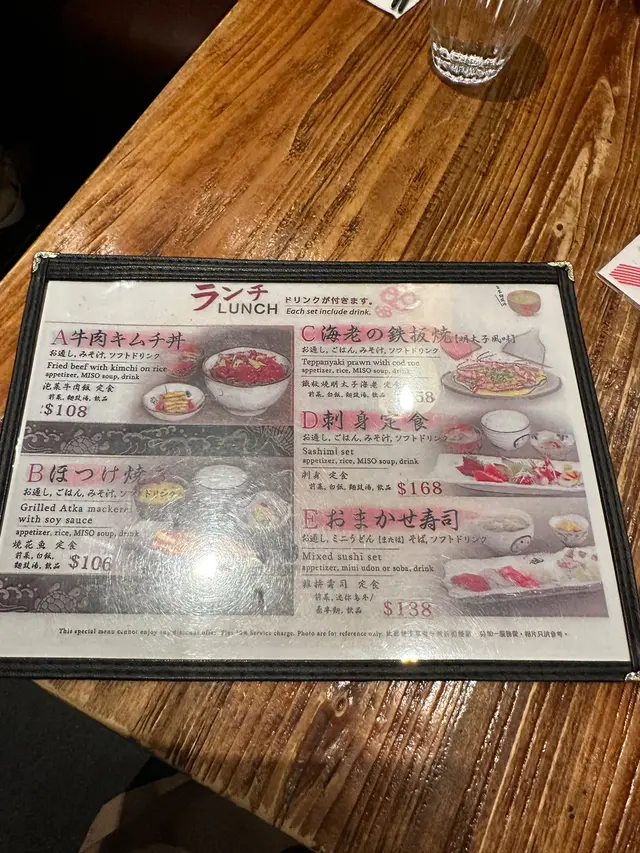 ランチ
LUNCH
ドリンクが付きます。
Each set include drink.
A牛肉キムチ丼
お通し,みそ汁,ソフトドリンク
Fried beef with kimchi on rice
appetizer, MISO soup, drink
泡菜牛肉飯 定食
前菜,麵豉湯,飲品
$108
Bほつけ焼
お通し,ごはん,みそ汁,ソフトドリンク
Grilled Atka mackerel
with soy sauce
appetizer, rice, MISO soup, drink
焼花魚 定食
前菜,白飯,
麵豉湯,飲品
$106
C海老の鉄板焼
お通し,ごはん,みそ汁,ソフトドリンク
Teppanyaki prawn with cod roe
appetizer, rice, MISO soup, drink
鐵板燒明太子海老
前菜,白飯,麵豉湯,飲品
58
D刺身定食
お通し,ごはん,みそ汁,ソフトドリンク
Sashimi set
appetizer, rice, MISO soup, drink
刺身 定食
前菜,白飯,麵豉湯,飲品
$168
Eおまかせ寿司
お通し,ミニうどん(または)そば,ソフトドリンク
Mixed sushi set
appetizer, mini udon or soba, drink
雜拼壽司 定食
前菜,迷你烏冬/
蕎麥麵,飲品
$138
This special menu cannot enjoy any discount offer. Plus 10% Service charge. Photo are for reference only.